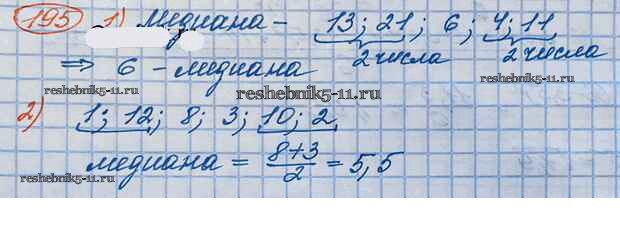 195 1) Медиана - 13; 21; 6; 4; 11
2 числа 2 числа
⇒ 6 - медиана
reshebnik5-11.ru
reshebnik5-11.ru
2) 1; 12; 8; 3; 10; 2
медиана = 8+3/2 = 5,5
reshebnik5-11.ru